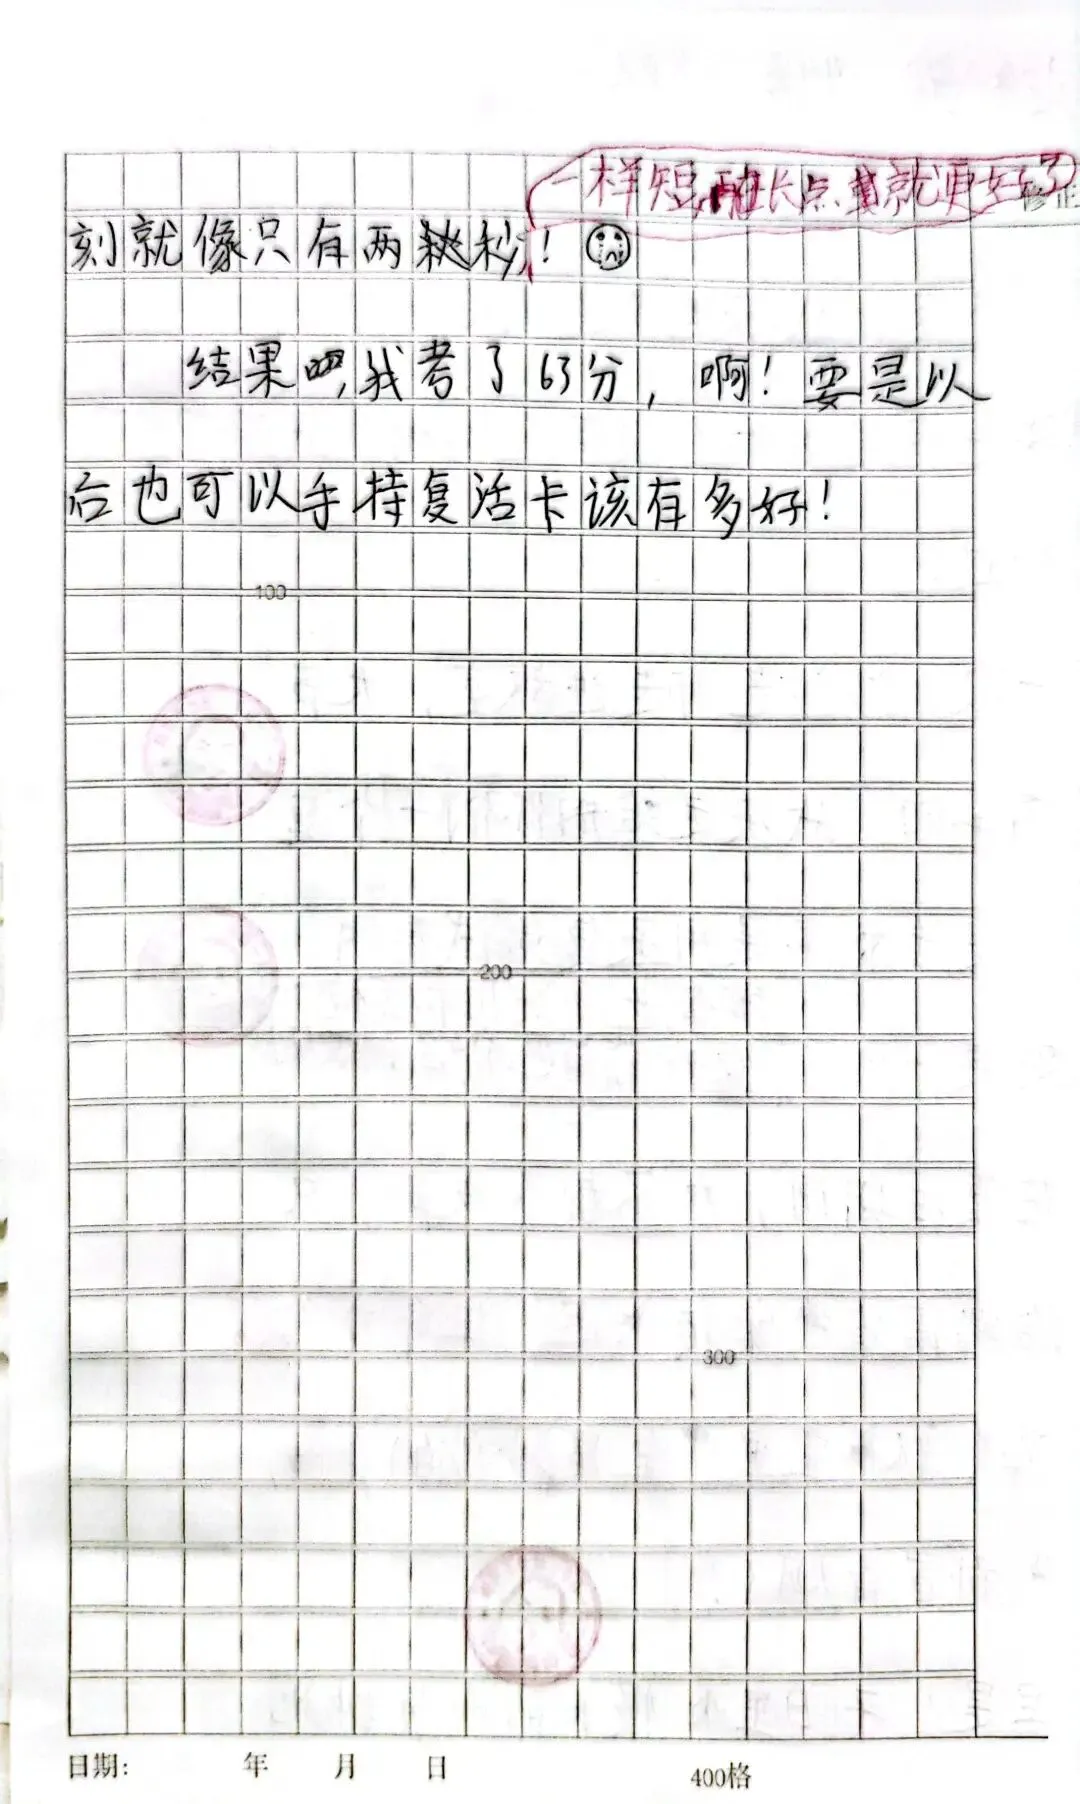 一样短,再长点就更好了
修正
刻就像只有两秒!
结果吧,我考了63分,啊!要是以
后也可以手持复活卡该有多好!
100
200
300
日期: 年 月 日
400格